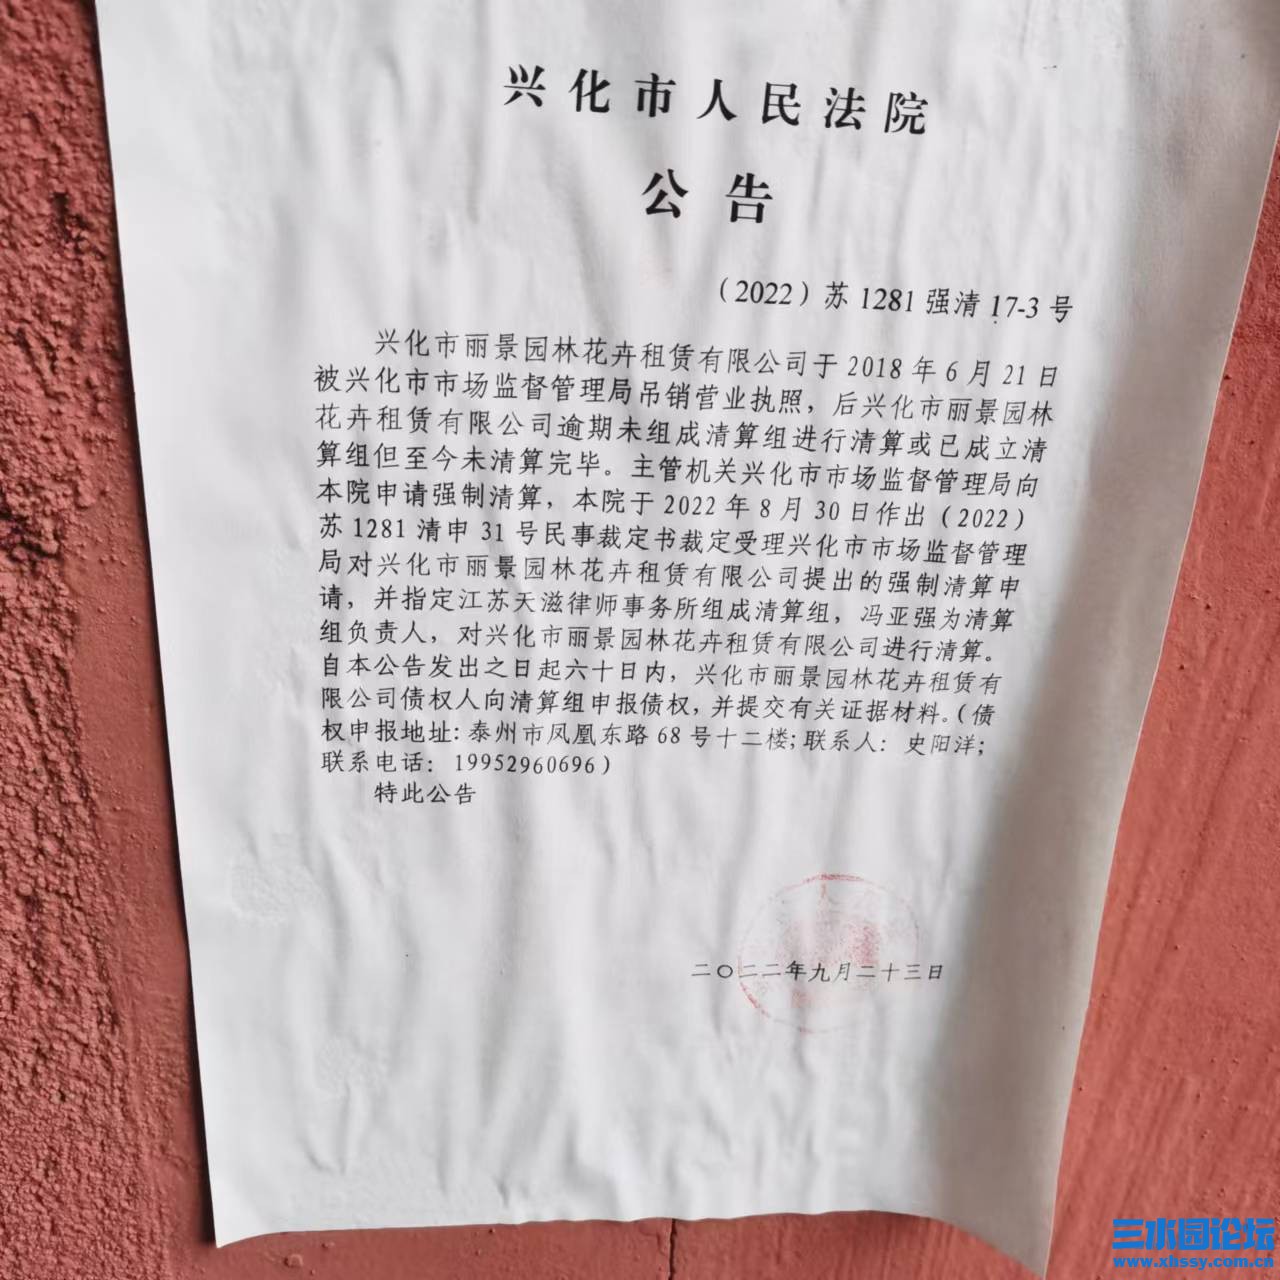 兴化市人民法院
公告
（2022）苏1281强清17-3号
兴化市丽景园林花卉租赁有限公司于2018年6月21日
被兴化市市场监督管理局吊销营业执照，后兴化市丽景园林
花卉租赁有限公司逾期未组成清算组进行清算或已成立清
算组但至今未清算完毕。主管机关兴化市市场监督管理局向
本院申请强制清算，本院于2022年8月30日作出（2022）
苏1281清申31号民事裁定书裁定受理兴化市市场监督管理
局对兴化市丽景园林花卉租赁有限公司提出的强制清算申
请，并指定江苏天滋律师事务所组成清算组，冯亚强为清算
组负责人，对兴化市丽景园林花卉租赁有限公司进行清算。
自本公告发出之日起六十日内，兴化市丽景园林花卉租赁有
限公司债权人向清算组申报债权，并提交有关证据材料。（债
权申报地址：泰州市凤凰东路68号十二楼；联系人：史阳洋；
联系电话：19952960696）
特此公告
二〇二二年九月二十三日
三水园论坛
www.xhssy.com.cn